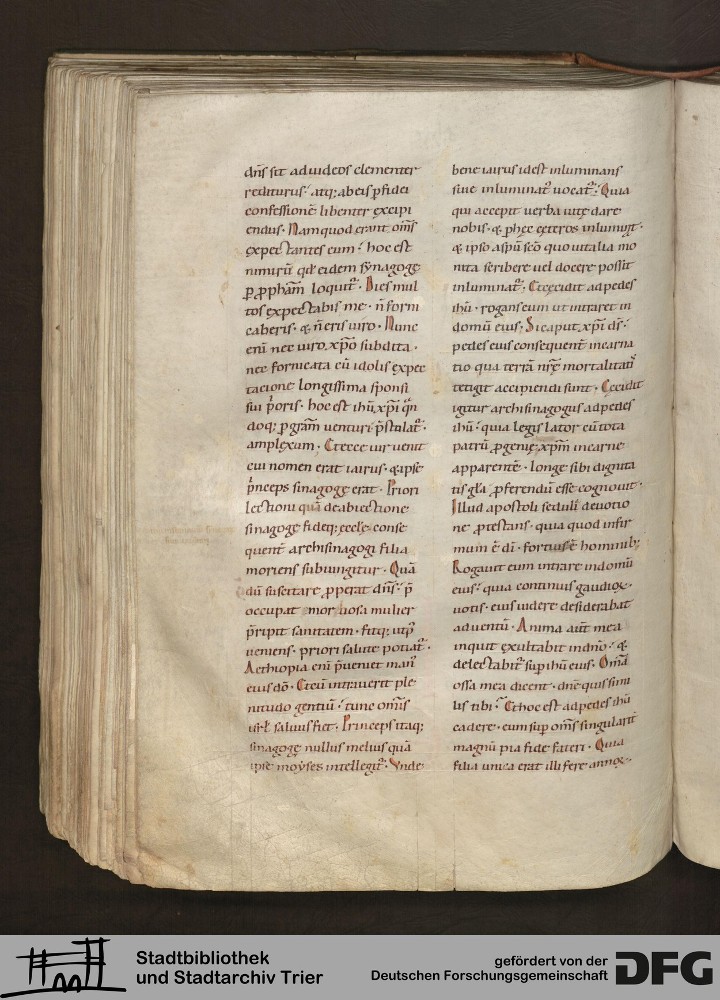 dn̄s sit ad uideos clementer
rediturus; atq; ab eis p̱ fidei
confessionē libenter excipi
endus. Nam quod erant om̄s
expectantes eum; hoc est
nimirū qđ eidem synagogę
ꝑ ꝓpham̄ loquit᷑. Dies mul
tos expectabis me. n̄ forni
caberis. & n̄ eris uiro. Nunc
enī nec uiro xp̄o subdita.
nec fornicata cū idolis expec
tatione longissima sponsi
sui p̄oris. hoc est ihū xp̄i q̄n
doq; ꝓ gram̄ uenturi p̄stulat᷑.
amplexum. Et ecce uir uenit
cui nomen erat iairus. & ipse
p̄nceps sinagogę erat. Priori
lectioni quā de abiectione
sinagogę fideq; ecclę conse
quent̄ archisinagogi filia
moriens subiungitur. Quā
dū suscitare ꝓperat dn̄s. p̄
occupat morbosa mulier
p̄ripit sanitatem. fitq; ut p̄
ueniens. priori salute potiat᷑.
Aethiopia enī p̄ueniet man᷒
eius dō. Et cū intrauerit ple
nitudo gentiū; tunc omīs
isrł saluus fiet. Princeps itaq;
sinagogę nullus melius quā
ipse moyses intellegit᷑. Vnde
bene iairus id est inluminans
siue inluminat᷒ uocat᷑. Quia
qui accepit uerba uitę dare
nobis. & ꝑ hęc ceteros inluminat.
& ipso a spū scō quo uitalia mo
nita scribere uel docere possit
inluminat᷑; Et cecidit ad pedes
ihū. rogans eum ut intraret in
domū eius; Si caput xp̄i dš.
pedes eius consequenter incarna
tio qua terrā nr̄ę mortalitatis
tetigit accipiendi sunt. Cecidit
igitur archisinagogus ad pedes
ihū; quia legis lator cū tota
patrū ꝓgenie xp̄m in carne
apparentē. longe sibi dignita
tis gl̄a p̄ferendū esse cognouit.
Illud apostoli seduli deuotio
ne ꝓtestans. quia quod infir
mum ē dī. fortius ē hominib;
Rogauit eum intrare in domū
eius; quia continuis gaudioꝝ
uotis. eius uidere desiderabat
aduentū. Anima aūt mea
inquit exultabit in dn̄o; &
delectabit᷑ sup̱ ihū eius. Om̄a
ossa mea dicent. dn̄e quis simi
lis tibi; Et hoc est ad pedes ihū
cadere. eum sup̱ om̄s singularit̄
magnū pia fide fateri. Quia
filia unica erat illi fere annoꝝ
Stadtbibliothek
und Stadtarchiv Trier
gefördert von der
Deutschen Forschungsgemeinschaft
DFG